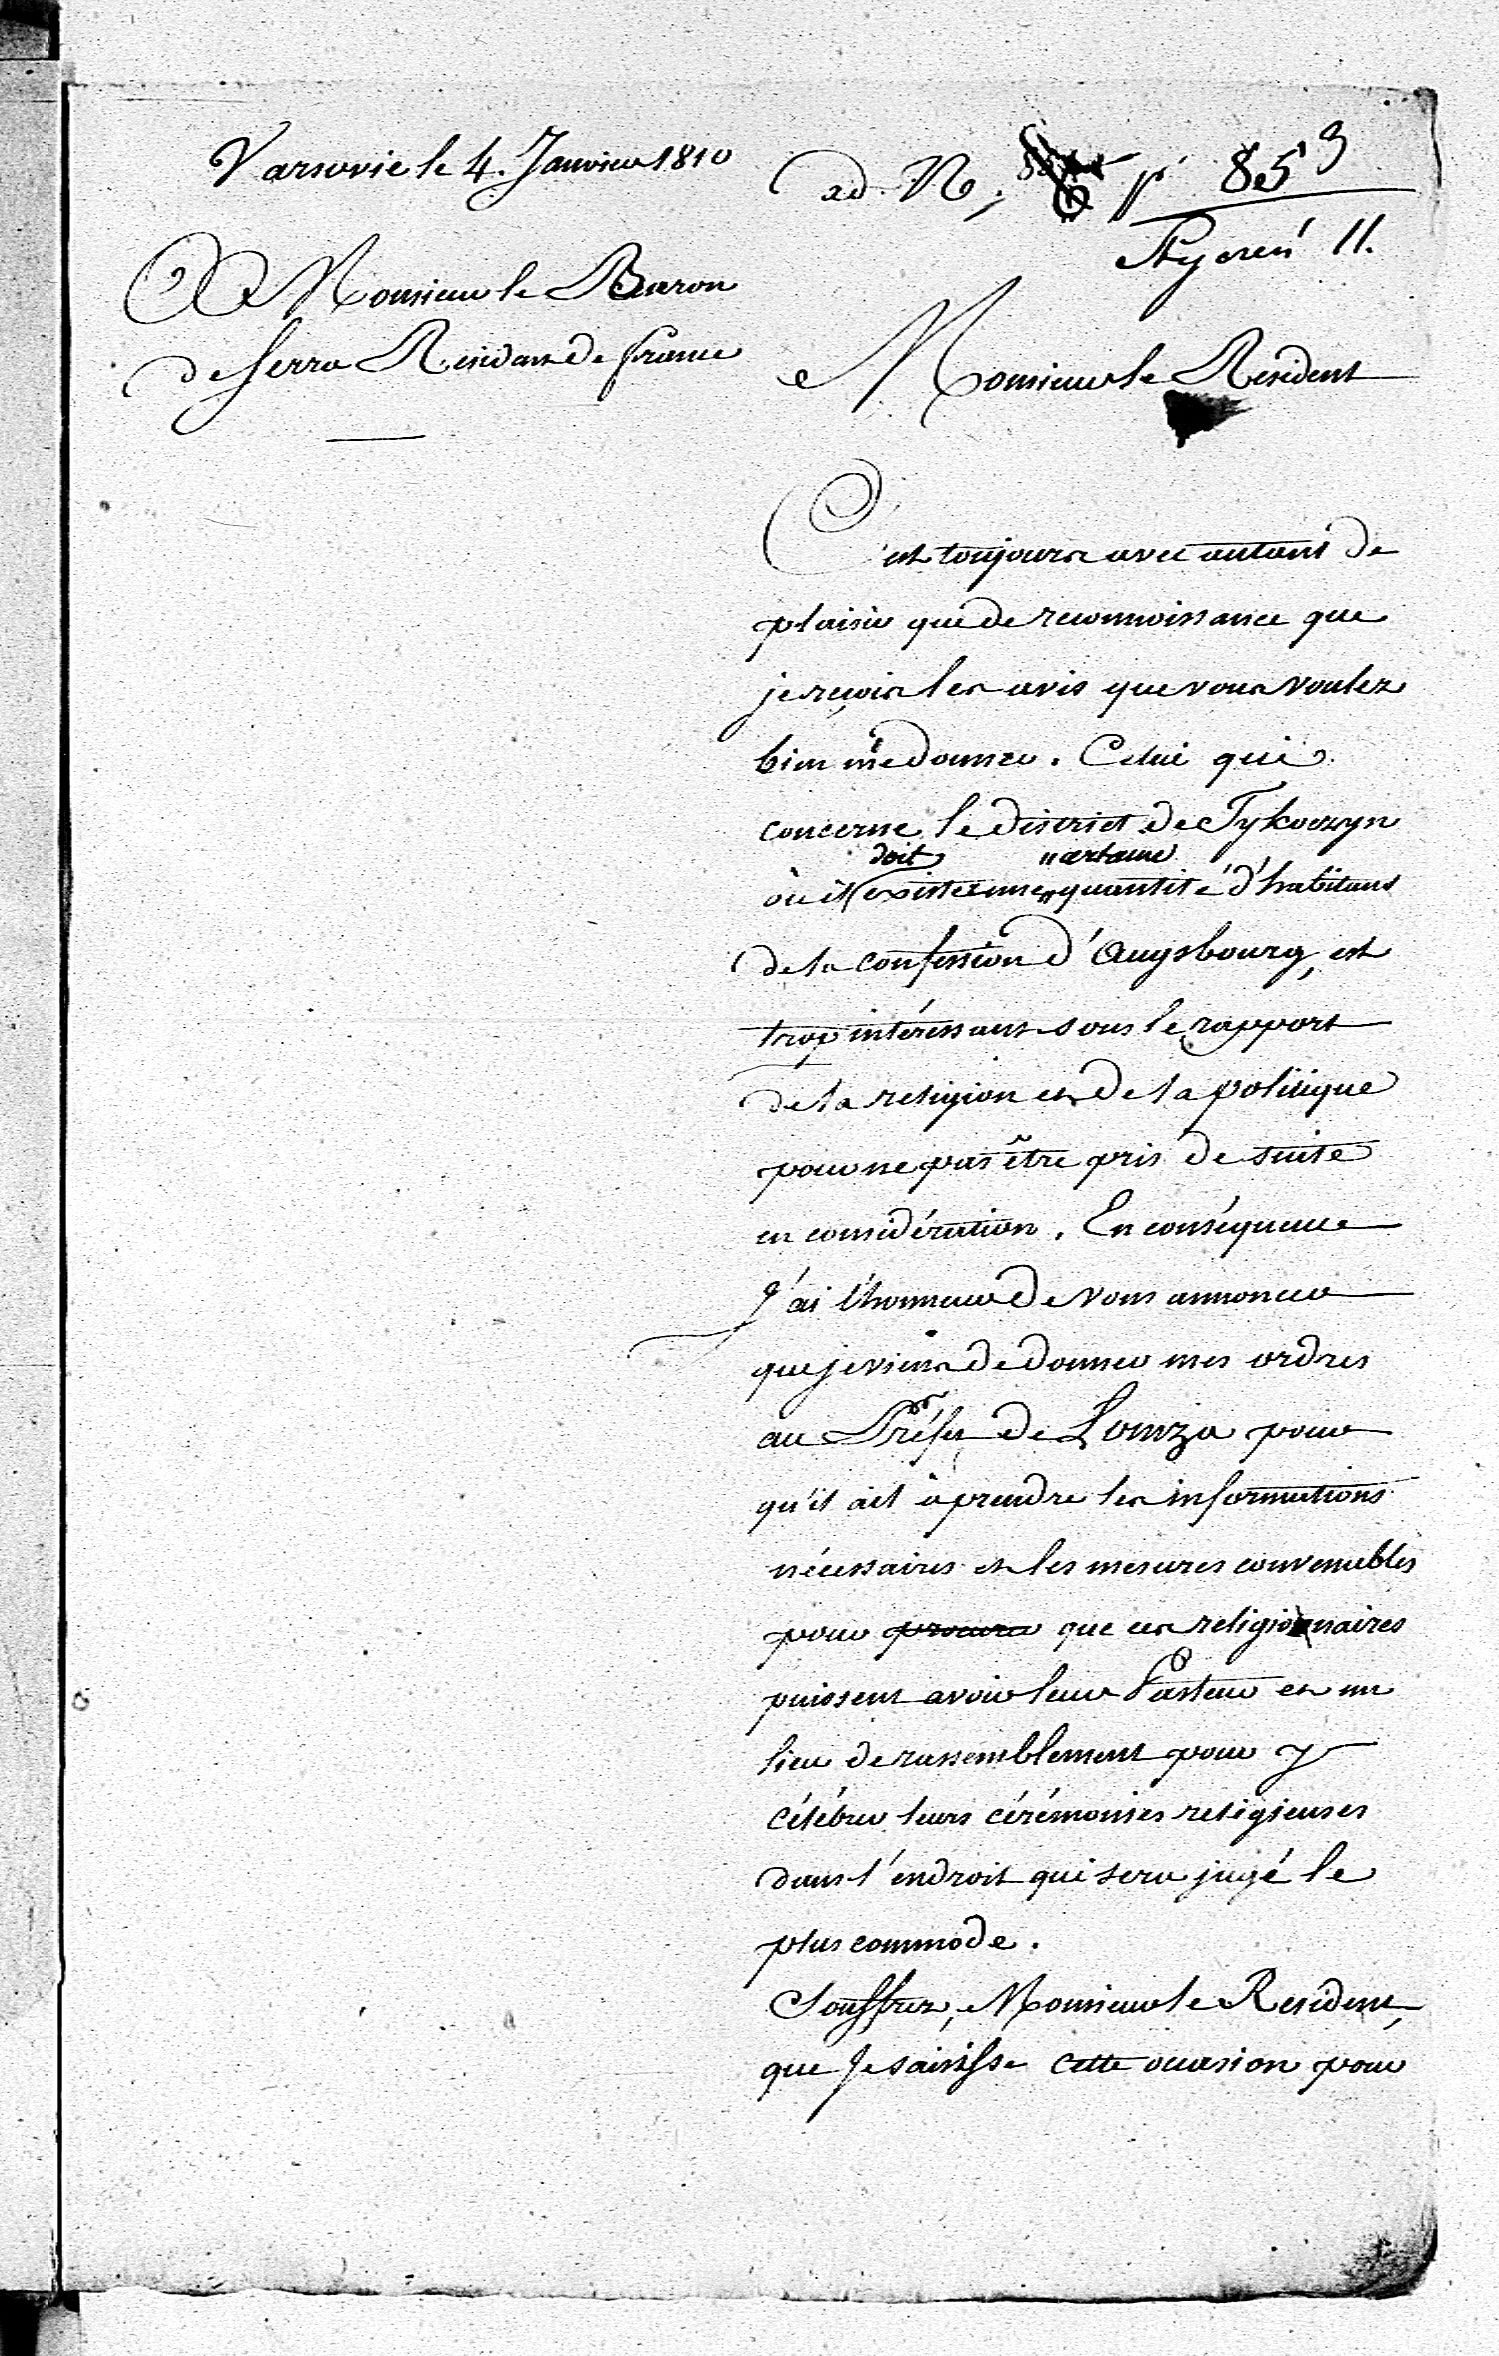 Varsovie le 4. Janvier 1810
ad N; p 853
Styczeń 11.
A Monsieur le Baron
de Serra Résident de france
Monsieur le Résident
C'est toujours avec autant de
plaisir que de reconnoissance que
je reçois les avis que vous voulez
bien me donner. Celui qui
concerne le district de Tykoczyn
doit "certaine
où il exister une "quantité d'habitans
de la confession d'Augsbourg, est
trop intéressant sous le rapport
de la religion et de la politique
pour ne pas être pris de suite
en considération. En conséquence
J'ai l'honneur de vous annoncer
que je viens de donner mes ordres
au Préfet de Lomza pour
qu'il ait à prendre les informations
nécessaires et les mesures convenables
pour procurer que ces religionnaires
puissent avoir leur Pasteur et un
lieu de rassemblement pour y
célébrer leurs cérémonies religieuses
dans l'endroit qui sera jugé le
plus commode.
Souffrez, Monsieur le Resident,
que Je saisisse cette occasion pour